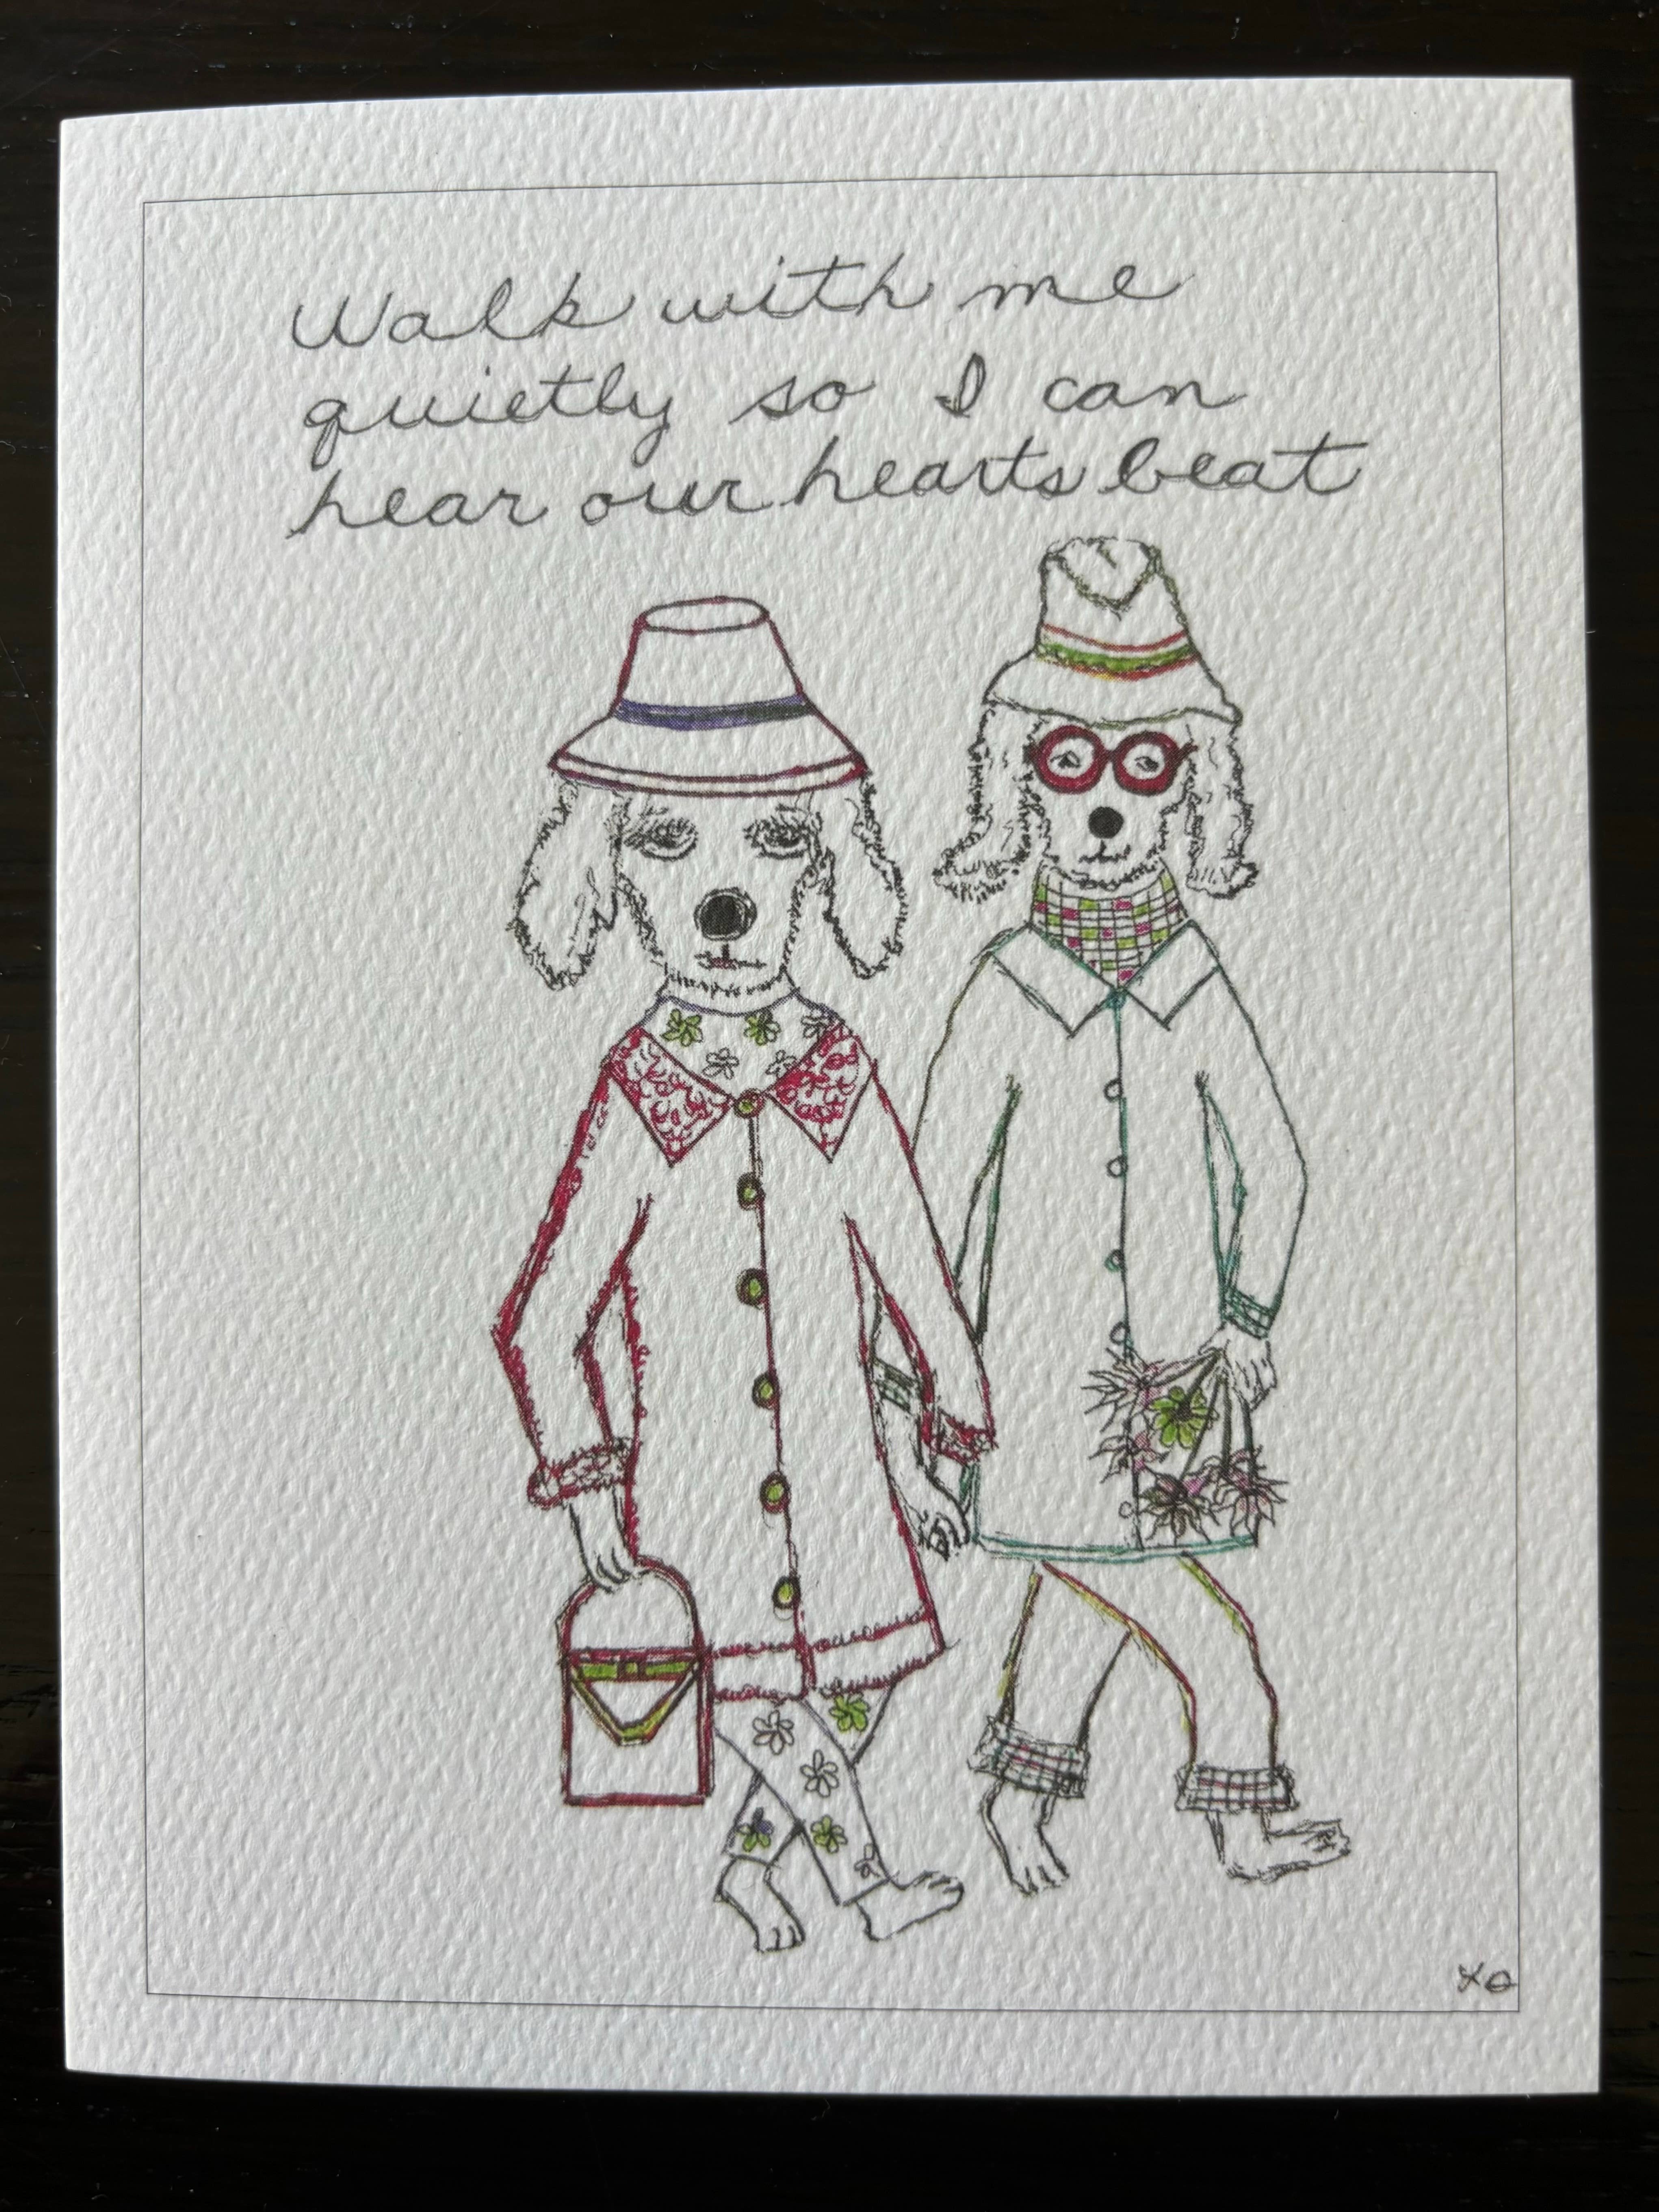 Walk with me
quietly so I can
hear our hearts beat
XO